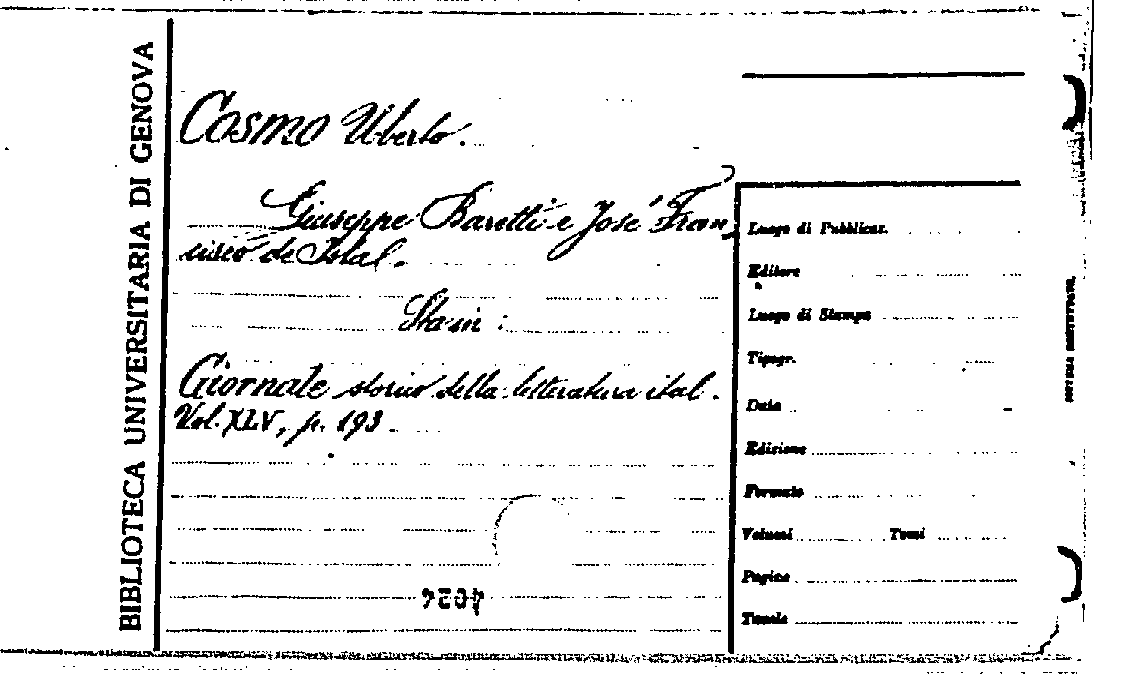 BIBLIOTECA UNIVERSITARIA DI GENOVA
Cosmo Uberto.
Giuseppe Baretti e José Fran
cisco de Islal.
Sta in:
Giornale storico della letteratura ital.
Vol. XLV, p. 193
Luogo di Pubblicaz.
Editore
Luogo di Stampa
Tipogr.
Data
Edizione
Formato
Volumi Tomi
Pagine
Tavole